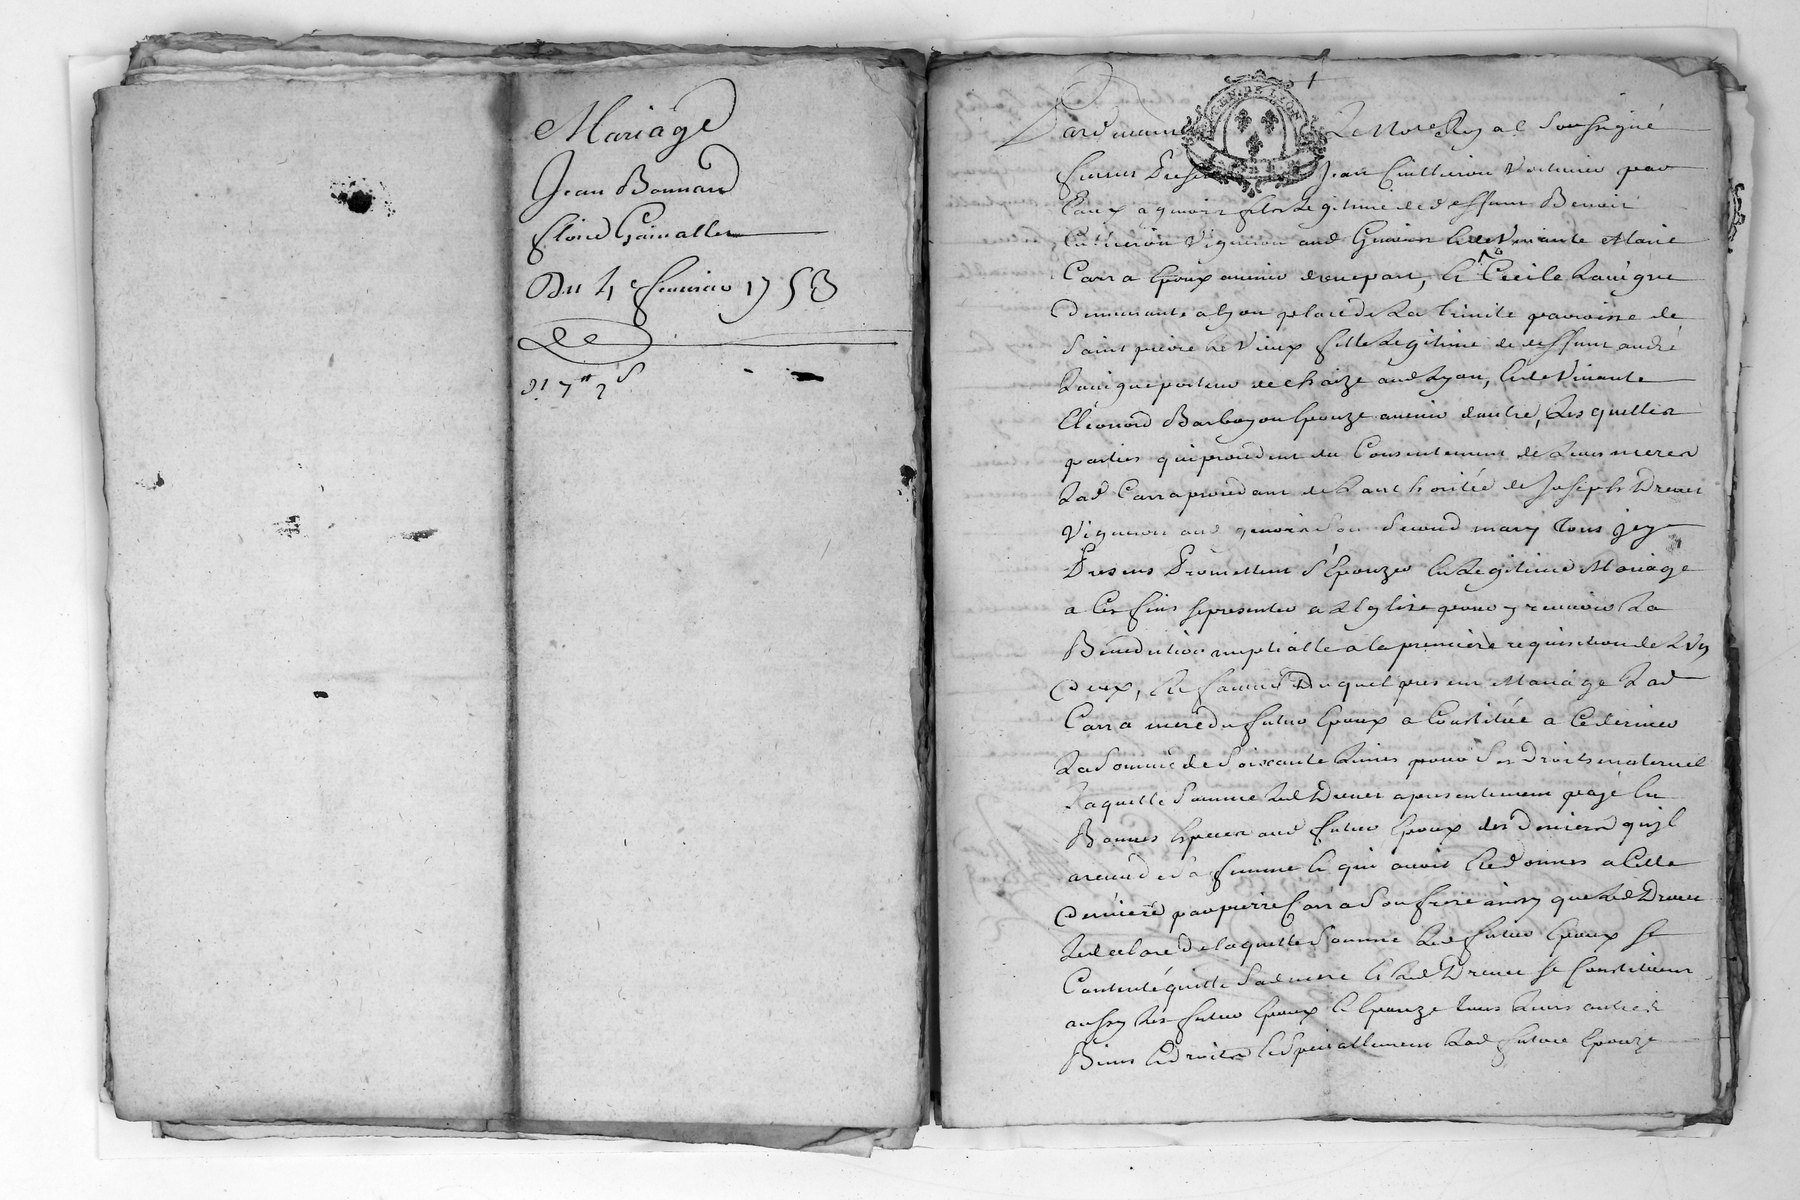 Mariage
Jean Bonnard
Du 4e feuvrier 1753
GEN. DE LYON
Pardevant Le Notre Royal Soussigné
furent Presents Jean Cuillieron Voiturier par
Eaux a givors fils Legitime de deffunt Benoit
Cuillieron Vigneron aud Givors & de Vivante Marie
Carra Epoux avenir d'une part, & Cecile Lavigne
demeurante a lyon place de La Trinité parroisse de
Saint pierre le Vieux fille Legitime de deffunt andré
Lavigne porteur de chaize aud Lyon, & de Vivante
Eléonord Barbayon Epouze avenir d'autre, Les quelles
parties qui procedent du Consentement de Leurs meres
Lad Carra procedant de L'authoritée de Joseph Drevet
Vigneron aud givors Son Second mary tous icy
Presens Promettent S'Epouzer En Legitime Mariage
a Ces fins se presenter a L'Eglise pour y recevoir La
Benediction nuptialle a la premiere requisition de L'un
d'eux, En faveur Duquel present Mariage Lad
Carra mere du futur Epoux a Constituée a Ce dernier
La Somme de Soixante Livres pour Ses Droits maternel
Laquelle Somme Led Drevet a presentement payé En
Bonnes Especes aud futur Epoux des Deniers quil
a recu de sa femme & qui avoit Eté donnes a Cette
derniere par pierre Carra Son frere ainsy que Led Drevet
Le declare De laquelle Somme Led futur Epoux Se
Contente quitte Sad mere & Led Drevet Se Constituent
aussy Les futur Epoux & Epouze tous Leurs autres
Biens & Droits & Specialement Lad future Epouze